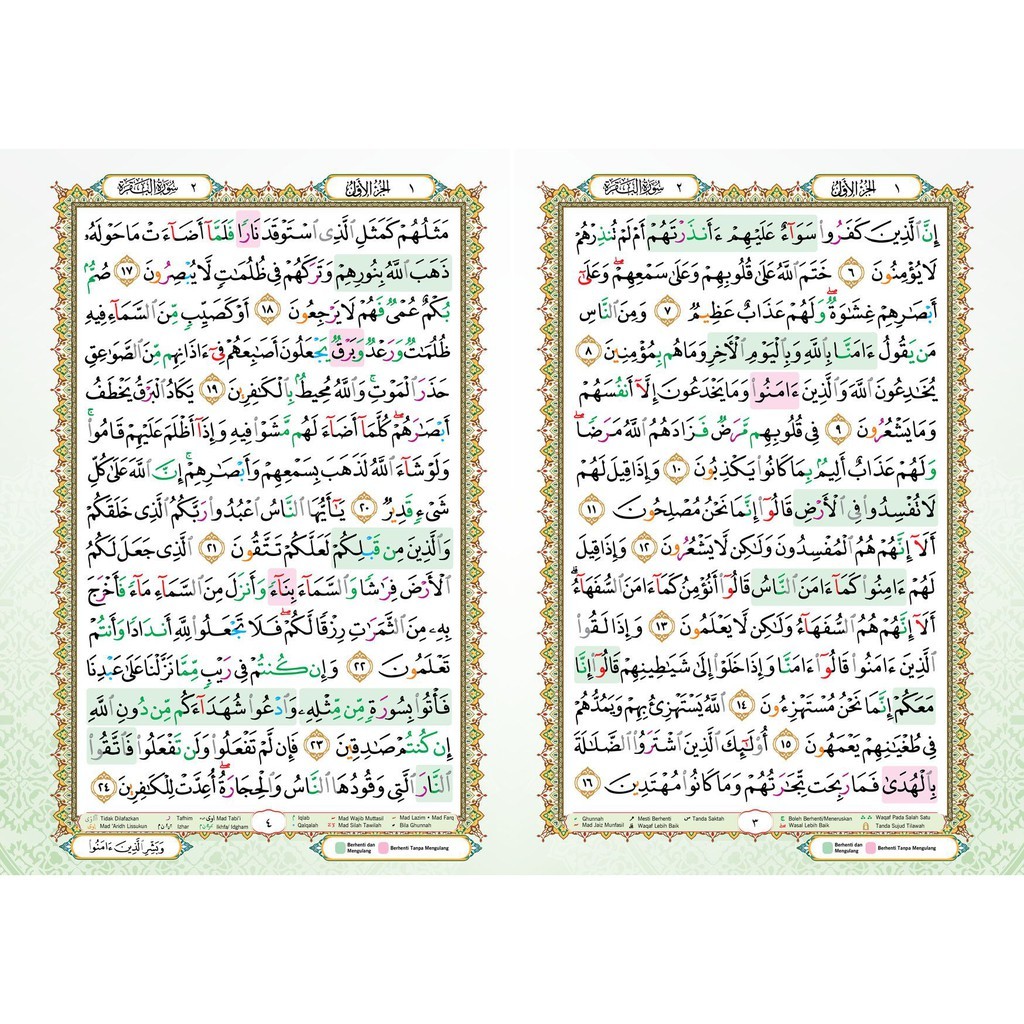 ١ الجزء الأول
٢ سورة البقرة
إِنَّ ٱلَّذِينَ كَفَرُوا۟ سَوَآءٌ عَلَيْهِمْ ءَأَنذَرْتَهُمْ أَمْ لَمْ تُنذِرْهُمْ
لَا يُؤْمِنُونَ ٦ خَتَمَ ٱللَّهُ عَلَىٰ قُلُوبِهِمْ وَعَلَىٰ سَمْعِهِمْ ۖ وَعَلَىٰٓ
أَبْصَـٰرِهِمْ غِشَـٰوَةٌ ۖ وَلَهُمْ عَذَابٌ عَظِيمٌ ٧ وَمِنَ ٱلنَّاسِ
مَن يَقُولُ ءَامَنَّا بِٱللَّهِ وَبِٱلْيَوْمِ ٱلْـَٔاخِرِ وَمَا هُم بِمُؤْمِنِينَ ٨
يُخَـٰدِعُونَ ٱللَّهَ وَٱلَّذِينَ ءَامَنُوا۟ وَمَا يَخْدَعُونَ إِلَّآ أَنفُسَهُمْ
وَمَا يَشْعُرُونَ ٩ فِى قُلُوبِهِم مَّرَضٌ فَزَادَهُمُ ٱللَّهُ مَرَضًا ۖ
وَلَهُمْ عَذَابٌ أَلِيمٌۢ بِمَا كَانُوا۟ يَكْذِبُونَ ١٠ وَإِذَا قِيلَ لَهُمْ
لَا تُفْسِدُوا۟ فِى ٱلْأَرْضِ قَالُوٓا۟ إِنَّمَا نَحْنُ مُصْلِحُونَ ١١
أَلَآ إِنَّهُمْ هُمُ ٱلْمُفْسِدُونَ وَلَـٰكِن لَّا يَشْعُرُونَ ١٢ وَإِذَا قِيلَ
لَهُمْ ءَامِنُوا۟ كَمَآ ءَامَنَ ٱلنَّاسُ قَالُوٓا۟ أَنُؤْمِنُ كَمَآ ءَامَنَ ٱلسُّفَهَآءُ ۗ
أَلَآ إِنَّهُمْ هُمُ ٱلسُّفَهَآءُ وَلَـٰكِن لَّا يَعْلَمُونَ ١٣ وَإِذَا لَقُوا۟
ٱلَّذِينَ ءَامَنُوا۟ قَالُوٓا۟ ءَامَنَّا وَإِذَا خَلَوْا۟ إِلَىٰ شَيَـٰطِينِهِمْ قَالُوٓا۟ إِنَّا
مَعَكُمْ إِنَّمَا نَحْنُ مُسْتَهْزِءُونَ ١٤ ٱللَّهُ يَسْتَهْزِئُ بِهِمْ وَيَمُدُّهُمْ
فِى طُغْيَـٰنِهِمْ يَعْمَهُونَ ١٥ أُو۟لَـٰٓئِكَ ٱلَّذِينَ ٱشْتَرَوُا۟ ٱلضَّلَـٰلَةَ
بِٱلْهُدَىٰ فَمَا رَبِحَت تِّجَـٰرَتُهُمْ وَمَا كَانُوا۟ مُهْتَدِينَ ١٦
Ghunnah Mesti Berhenti Tanda Saktah ٣ Boleh Berhenti/Meneruskan Waqaf Pada Salah Satu
Mad Jaiz Munfasil Waqaf Lebih Baik Wasal Lebih Baik Tanda Sujud Tilawah
Berhenti dan Mengulang Berhenti Tanpa Mengulang
١ الجزء الأول
٢ سورة البقرة
مَثَلُهُمْ كَمَثَلِ ٱلَّذِى ٱسْتَوْقَدَ نَارًا فَلَمَّآ أَضَآءَتْ مَا حَوْلَهُۥ
ذَهَبَ ٱللَّهُ بِنُورِهِمْ وَتَرَكَهُمْ فِى ظُلُمَـٰتٍ لَّا يُبْصِرُونَ ١٧ صُمٌّۢ
بُكْمٌ عُمْىٌ فَهُمْ لَا يَرْجِعُونَ ١٨ أَوْ كَصَيِّبٍ مِّنَ ٱلسَّمَآءِ فِيهِ
ظُلُمَـٰتٌ وَرَعْدٌ وَبَرْقٌ يَجْعَلُونَ أَصَـٰبِعَهُمْ فِىٓ ءَاذَانِهِم مِّنَ ٱلصَّوَٰعِقِ
حَذَرَ ٱلْمَوْتِ ۚ وَٱللَّهُ مُحِيطٌۢ بِٱلْكَـٰفِرِينَ ١٩ يَكَادُ ٱلْبَرْقُ يَخْطَفُ
أَبْصَـٰرَهُمْ ۖ كُلَّمَآ أَضَآءَ لَهُم مَّشَوْا۟ فِيهِ وَإِذَآ أَظْلَمَ عَلَيْهِمْ قَامُوا۟ ۚ
وَلَوْ شَآءَ ٱللَّهُ لَذَهَبَ بِسَمْعِهِمْ وَأَبْصَـٰرِهِمْ ۚ إِنَّ ٱللَّهَ عَلَىٰ كُلِّ
شَىْءٍ قَدِيرٌ ٢٠ يَـٰٓأَيُّهَا ٱلنَّاسُ ٱعْبُدُوا۟ رَبَّكُمُ ٱلَّذِى خَلَقَكُمْ
وَٱلَّذِينَ مِن قَبْلِكُمْ لَعَلَّكُمْ تَتَّقُونَ ٢١ ٱلَّذِى جَعَلَ لَكُمُ
ٱلْأَرْضَ فِرَٰشًا وَٱلسَّمَآءَ بِنَآءً وَأَنزَلَ مِنَ ٱلسَّمَآءِ مَآءً فَأَخْرَجَ
بِهِۦ مِنَ ٱلثَّمَرَٰتِ رِزْقًا لَّكُمْ ۖ فَلَا تَجْعَلُوا۟ لِلَّهِ أَندَادًا وَأَنتُمْ
تَعْلَمُونَ ٢٢ وَإِن كُنتُمْ فِى رَيْبٍ مِّمَّا نَزَّلْنَا عَلَىٰ عَبْدِنَا
فَأْتُوا۟ بِسُورَةٍ مِّن مِّثْلِهِۦ وَٱدْعُوا۟ شُهَدَآءَكُم مِّن دُونِ ٱللَّهِ
إِن كُنتُمْ صَـٰدِقِينَ ٢٣ فَإِن لَّمْ تَفْعَلُوا۟ وَلَن تَفْعَلُوا۟ فَٱتَّقُوا۟
ٱلنَّارَ ٱلَّتِى وَقُودُهَا ٱلنَّاسُ وَٱلْحِجَارَةُ ۖ أُعِدَّتْ لِلْكَـٰفِرِينَ ٢٤
Tidak Dilafazkan Tafhim Mad Tabi'i ٤ Iqlab Mad Wajib Muttasil Mad Lazim • Mad Farq
Mad 'Aridh Lissukun Izhar Ikhfa' Idgham Qalqalah Mad Silah Tawilah Bila Ghunnah
وَبَشِّرِ ٱلَّذِينَ ءَامَنُوا۟
Berhenti dan Mengulang Berhenti Tanpa Mengulang